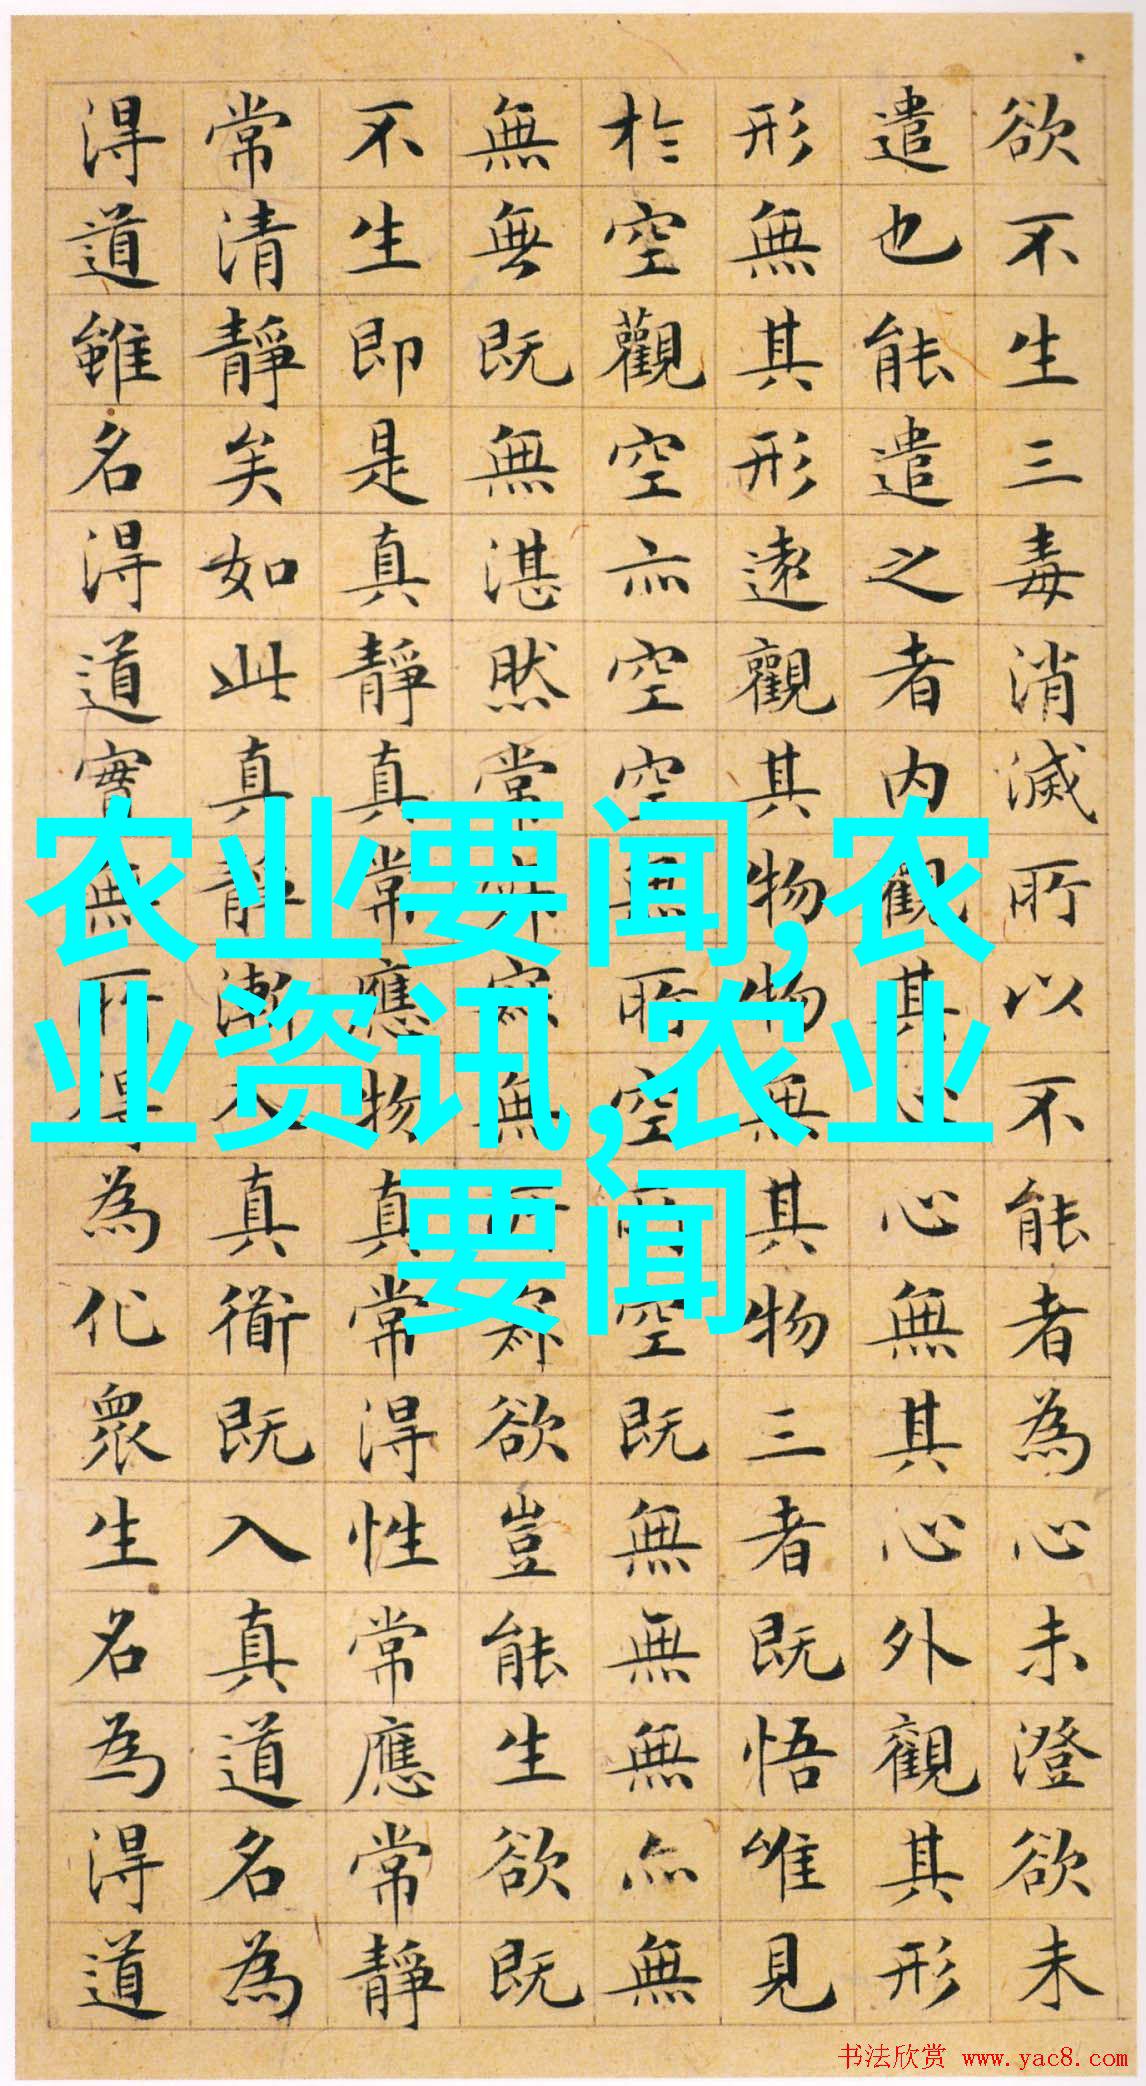 欲不生三毒消滅所以不能者為心未澄欲未
遣也能遣之者内觀其心心無其心外觀其形
形無其形遠觀其物物無其物三者既悟唯見
於空觀空亦空空無所空所空既無無無亦無
無無既無湛然常寂寂無所寂欲豈能生欲既
不生即是真靜真常應物真常得性常應常靜
常清靜矣如此真靜漸入真衟既入真道名為
得道雖名得道實無所得為化眾生名為得道
农业要闻,农
业资讯,农业
要闻
书法欣赏 www.yac8.com